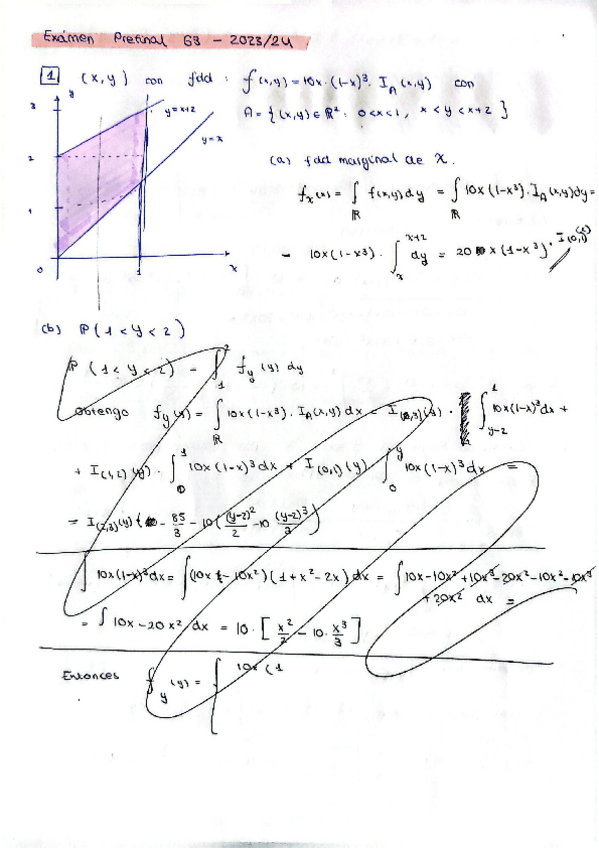 Exámen Prefinal G3 - 2023/24
1 (x,y) con fdd: f(x,y) = 10x·(1-x)³·I_A(x,y) con
A = {(x,y)∈ℝ²: 0<x<1, x<y<x+2}
y
3
y=x+2
y=x
2
1
0
1
x
(a) fdd marginal de X.
f_x(x) = ∫_ℝ f(x,y)dy = ∫_ℝ 10x(1-x³)·I_A(x,y)dy =
= 10x(1-x³)·∫_x^{x+2} dy = 20 x(1-x³)·I_(0,1)(x)
(b) P(1<Y<2)
P(1<Y<2) = ∫_1^2 f_y(y) dy
Obtengo f_y(y) = ∫_ℝ 10x(1-x³)·I_A(x,y) dx = I_(2,3)(y)·∫_{y-2}^1 10x(1-x)³dx +
+ I_(1,2)(y)·∫_0^1 10x(1-x)³dx + I_(0,1)(y) ∫_0^y 10x(1-x)³dx =
= I_(2,3)(y){ - 85/3 - 10((y-2)²/2 - 10 (y-2)³/3)
∫10x(1-x)³dx = ∫(10x - 10x²)(1+x²-2x)dx = ∫10x-10x²+10x³-20x²-10x²-10x³
+20x² dx =
= ∫10x-20x² dx = 10·[x²/2 - 10·x³/3]
Entonces f_y(y) = { 10x(1